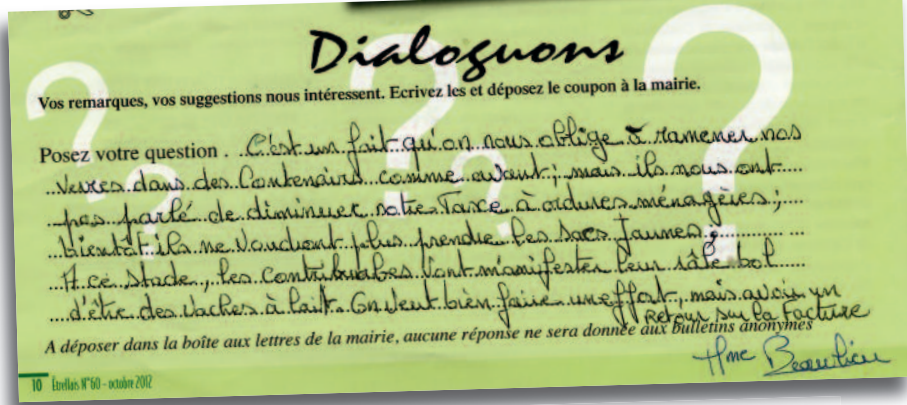 Dialoguons
Vos remarques, vos suggestions nous intéressent. Ecrivez les et déposez le coupon à la mairie.
Posez votre question . C'est un fait qu'on nous oblige à ramener nos
verres dans des Containairs comme avant ; mais ils nous ont
pas parlé de diminuer notre Taxe à ordures ménagères ;
bientôt ils ne voudront plus prendre les sacs Jaunes ;
A ce stade, les Contribuables vont manifester leur râle bol
d'être des Vaches à lait. On veut bien faire un effort, mais avoir un
Retour sur la facture
A déposer dans la boîte aux lettres de la mairie, aucune réponse ne sera donnée aux bulletins anonymes
Mme Beaulieu
10 Étrellais N°60 - octobre 2012